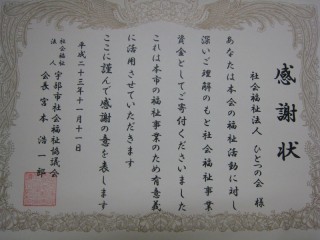 感謝状
社会福祉法人 ひとつの会 様
あなたは本会の福祉活動に対し
深いご理解のもと社会福祉事業
資金としてご寄付くださいました
これは本市の福祉事業のため有意義
に活用させていただきます
ここに謹んで感謝の意を表します
平成二十三年十一月十一日
社会福祉法人 宇部市社会福祉協議会
会長 宮本浩一郎